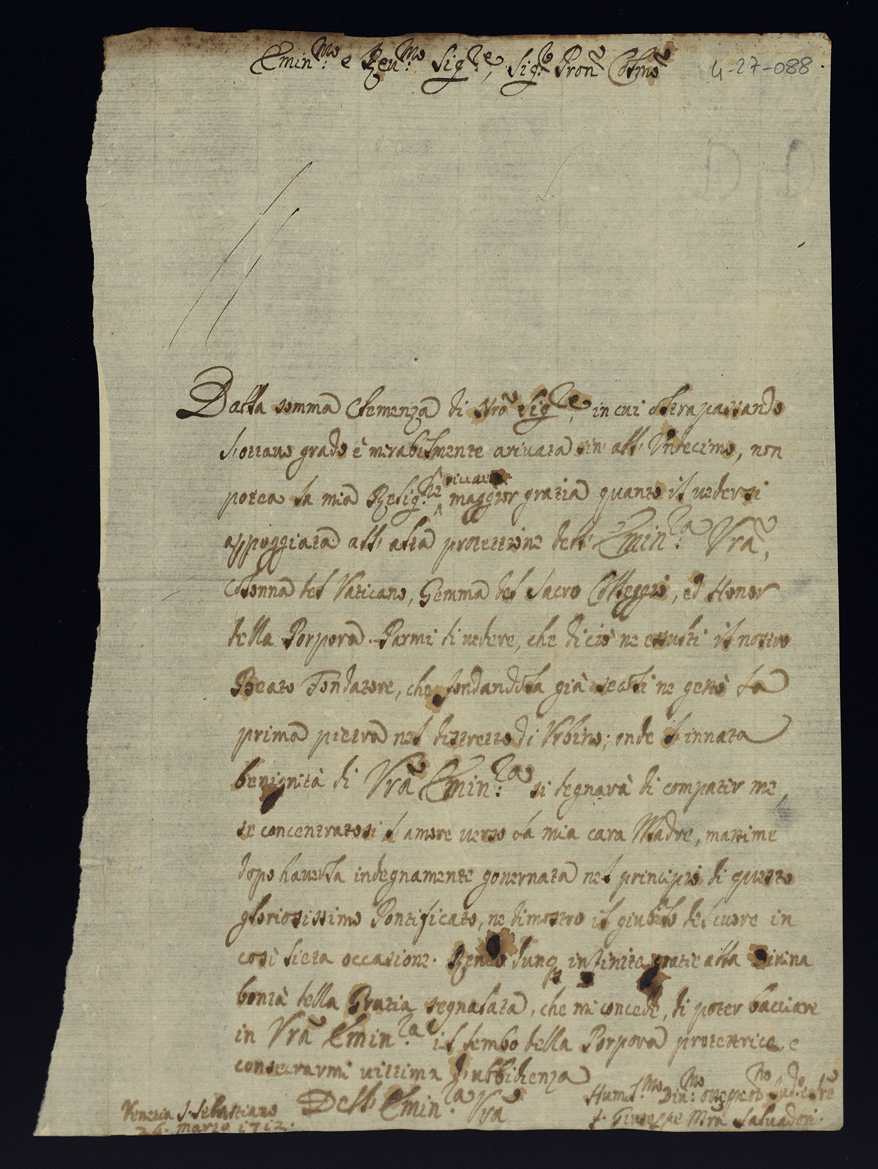 Emin.mo e Reu.mo Sig.re, Sig.r Pron Colmo
4-27-088
Dalla somma Clemenza di Nro Sig.re, in cui oltrapassando
l'ottauo grado è mirabilmente ariuata sin all'Vndecimo, non
potea la mia Relig.ne riceuere maggior gratia quanto il uedersi
appoggiata all'alta protettione dell'Emin.za Vra,
Colonna del Vaticano, Gemma del Sacro Colleggio, ed Honor
della Porpora. Parmi di uedere, che di ciò ne essulti il nostro
Beato Fondatore, che fondandola già ne gettò la
prima pietra nel distretto di Vrbino; onde l'innata
benignità di Vra Emin.za si degnarà di compatir me,
se concentratosi l'amore uerso la mia cara Madre, massime
dopo hauerla indegnamente gouernata nel principio di questo
gloriosissimo Pontificato, ne dimostro il giubilo del cuore in
così lieta occasione. Rendo dunq infinite gratie alla Diuina
bontà della Gratia segnalata, che mi concede, di poter bacciare
in Vra Emin.za il lembo della Porpora protettrice, e
consecrarmi uittima d'ubbidienza
Dell'Emin.za Vra
Venetia S. Sebastiano
26. Marzo 1712.
Hum.mo Diu.mo Ser.re
f. Giuseppe Mra Saluadori